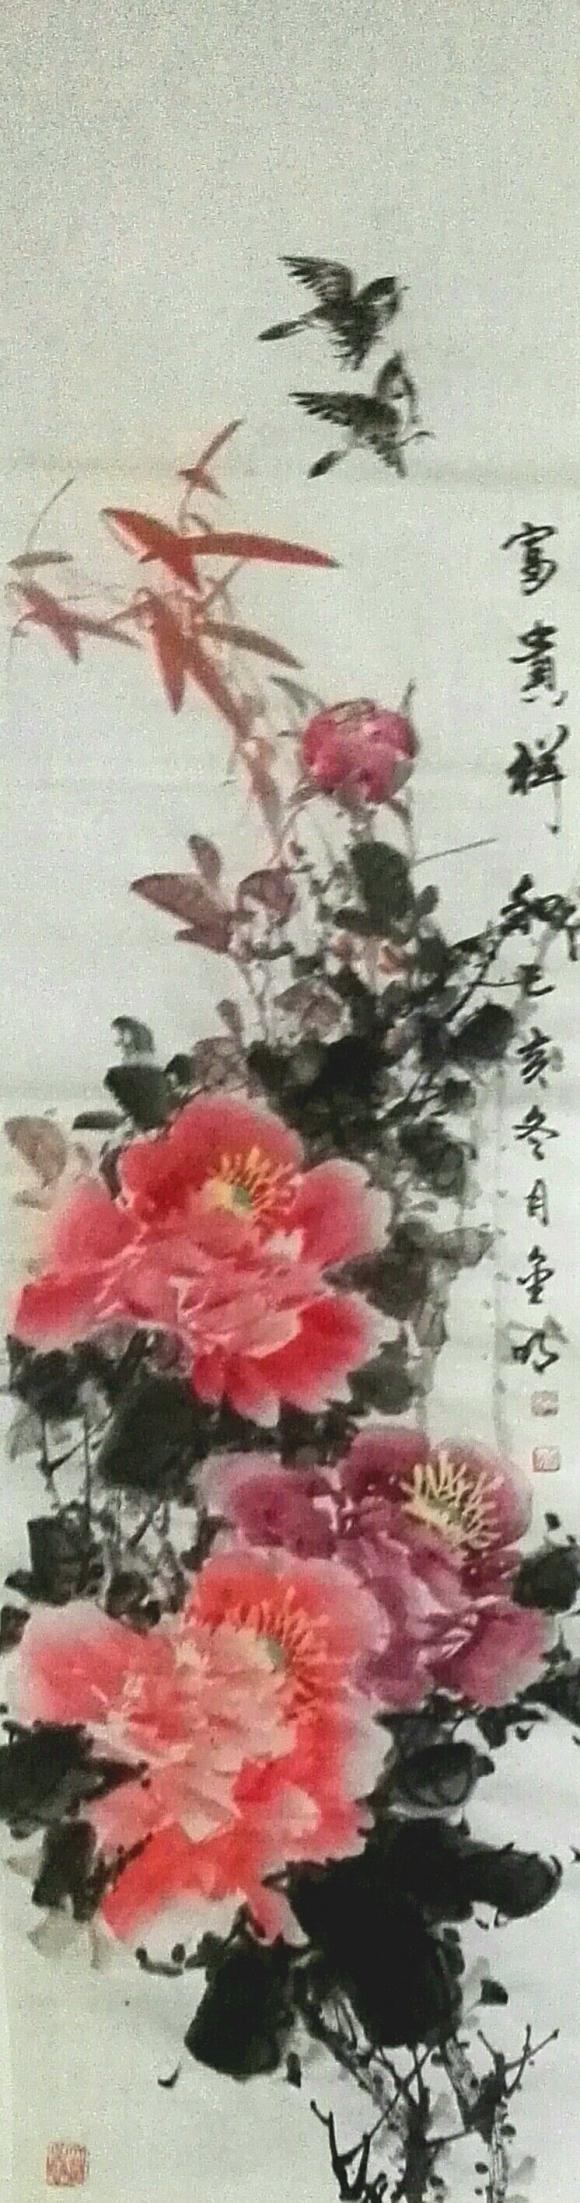 富貴祥和己亥冬月金明